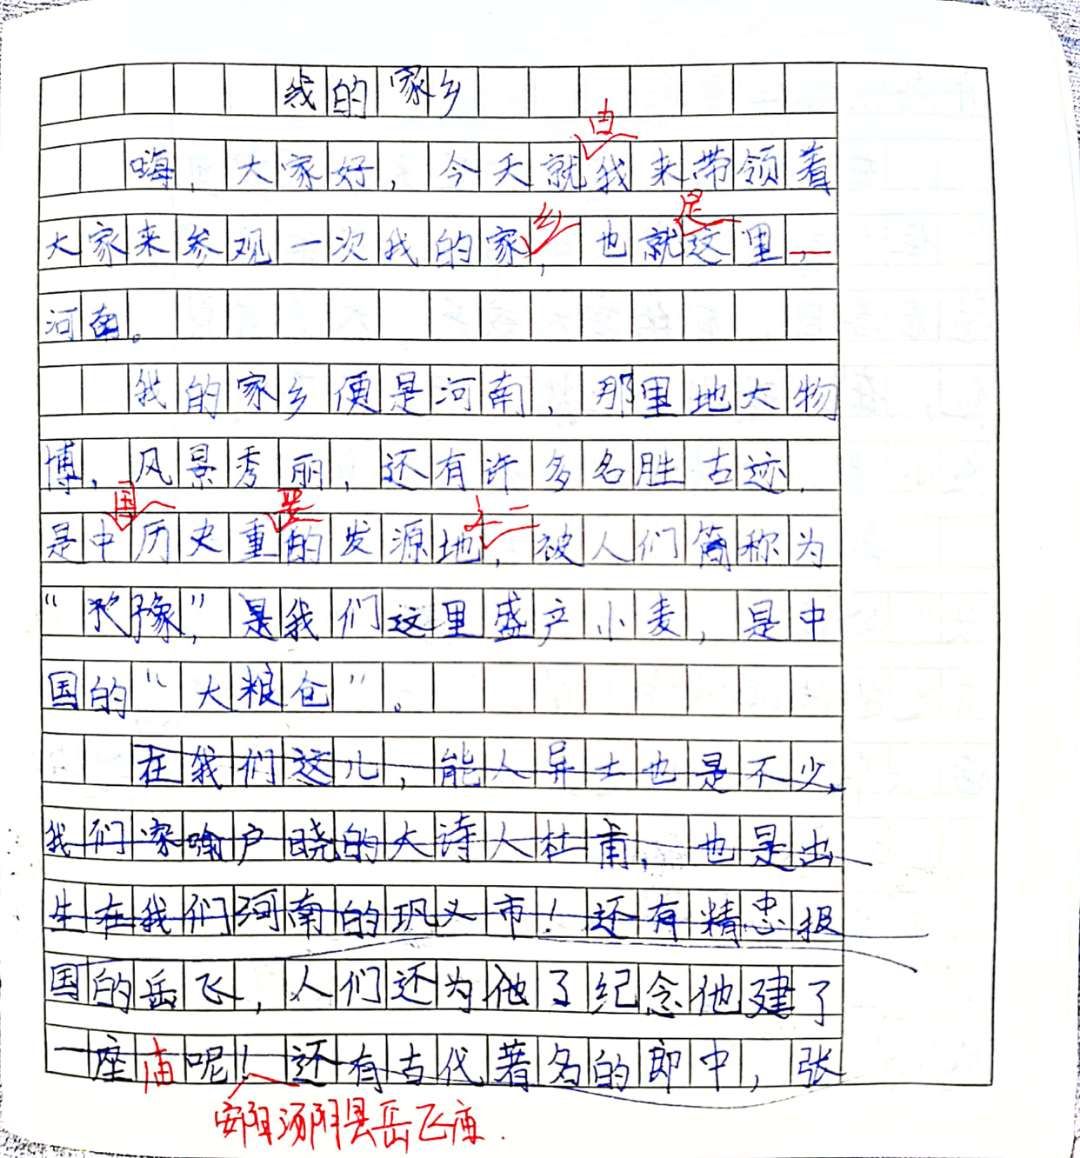 我的家乡
由
嗨，大家好，今天就我来带领着
乡 是
大家来参观一次我的家，也就这里，
河南。
我的家乡便是河南，那里地大物
博，风景秀丽，还有许多名胜古迹，
国 要 之一
是中历史重的发源地，被人们简称为
“豫”，是我们这里盛产小麦，是中
国的“大粮仓”。
在我们这儿，能人异士也是不少，
我们家喻户晓的大诗人杜甫，也是出
生在我们河南的巩义市！还有精忠报
国的岳飞，人们还为他了纪念他建了
一座庙呢！还有古代著名的郎中，张
安阳汤阴县岳飞庙.